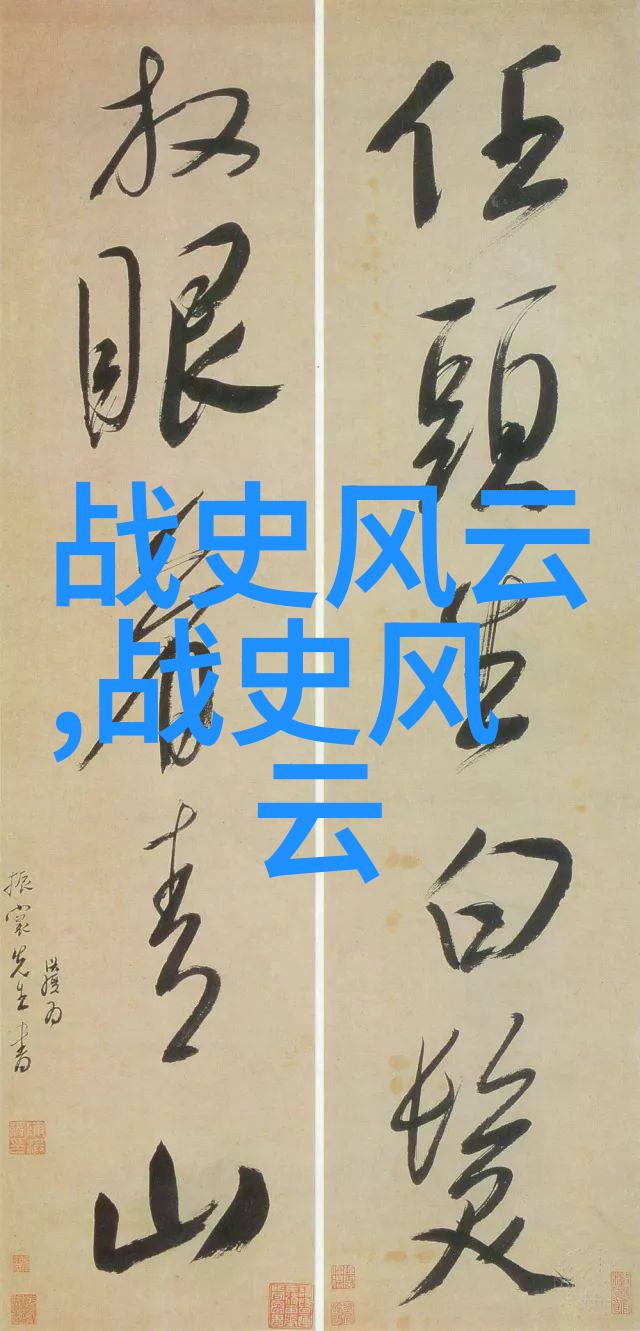 任頭生白髮
放眼看青山
洪綬為
先生書
战史风云
,战史风
云